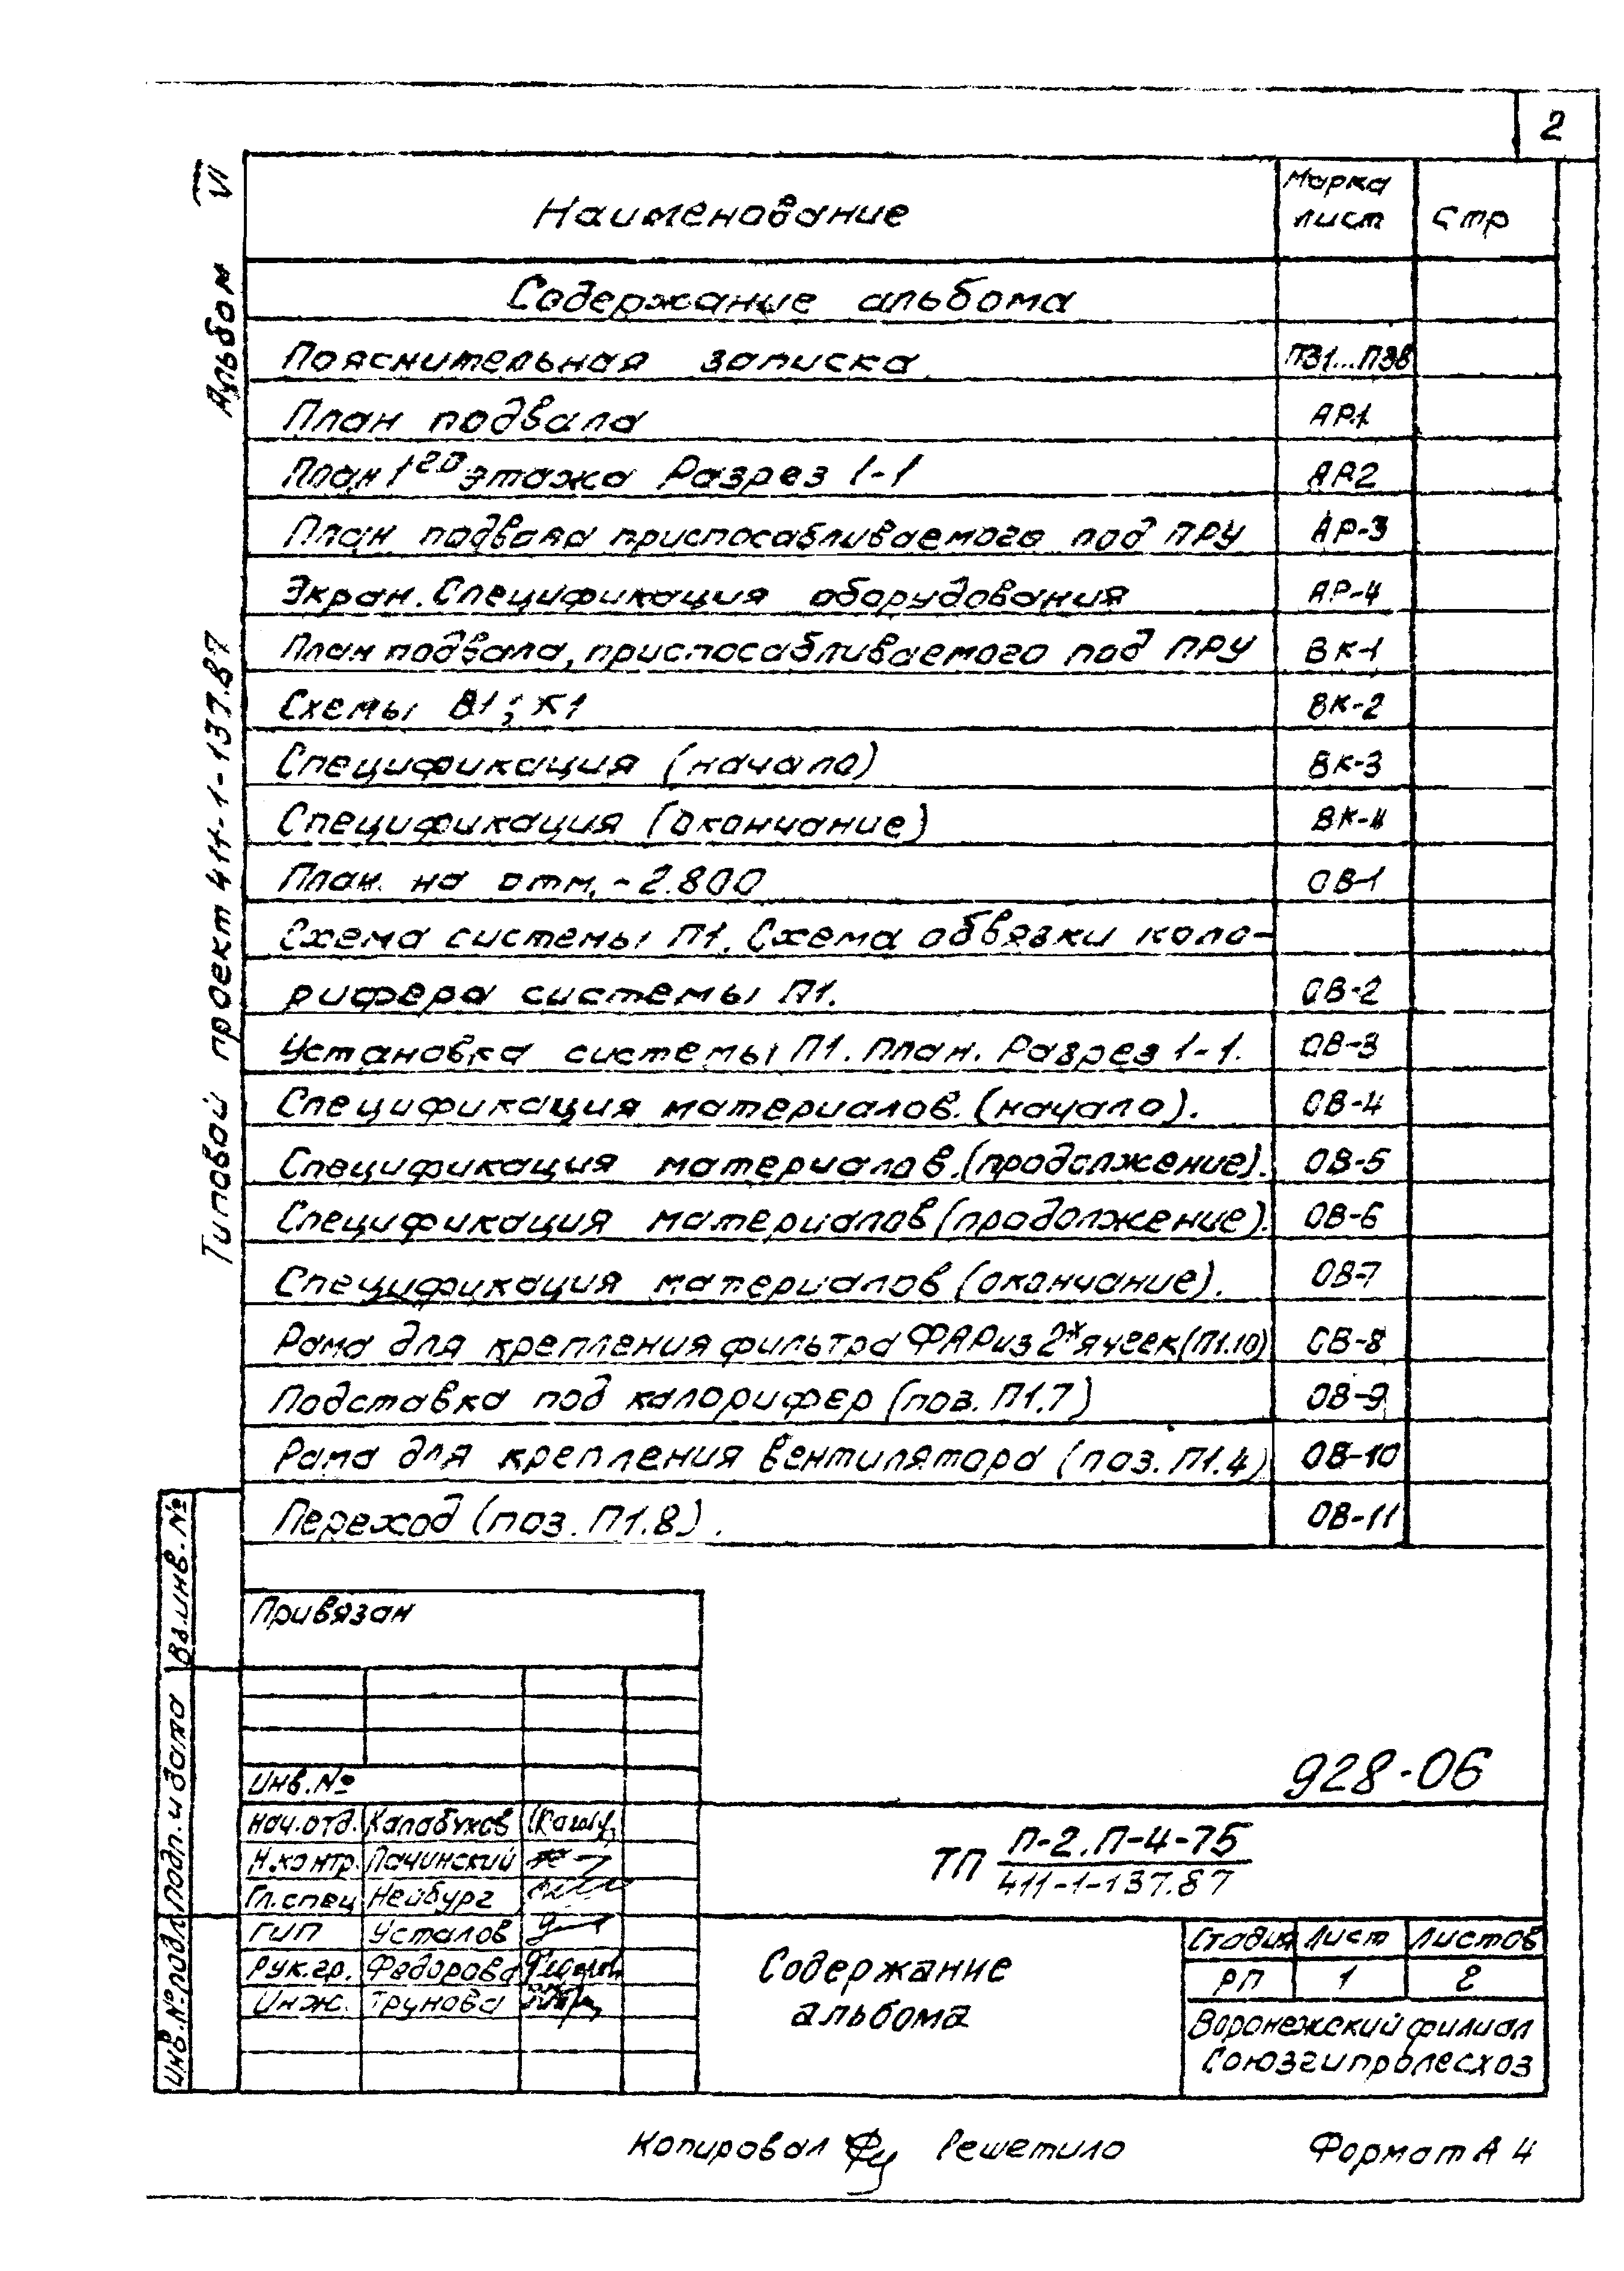 2
Альбом VI
Типовой проект 411-1-137.87
Наименование
Марка лист
Стр
Содержание альбома
Пояснительная записка ПЗ1...ПЗ8
План подвала АР.1
План 1го этажа Разрез 1-1 АР2
План подвала приспосабливаемого под ПРУ АР-3
Экран. Спецификация оборудования АР-4
План подвала, приспосабливаемого под ПРУ ВК-1
Схемы В1; К1 ВК-2
Спецификация (начало) ВК-3
Спецификация (окончание) ВК-4
План. на отм. -2.800 ОВ-1
Схема системы П1. Схема обвязки кало-
рифера системы П1. ОВ-2
Установка системы П1. План. Разрез 1-1. ОВ-3
Спецификация материалов. (начало). ОВ-4
Спецификация материалов. (продолжение). ОВ-5
Спецификация материалов (продолжение). ОВ-6
Спецификация материалов (окончание). ОВ-7
Рама для крепления фильтра ФЯР из 2х ячеек (П1.10) ОВ-8
Подставка под калорифер (поз. П1.7) ОВ-9
Рама для крепления вентилятора (поз. П1.4) ОВ-10
Переход (поз. П1.8). ОВ-11
Вз.инв. №
Подп. и дата
Инв.№ подл
Привязан
Инв.№
Нач.отд. Калабухов
Н.контр. Лачинский
Гл.спец Нейбург
ГИП Усталов
Рук.гр. Федорова
Инж. Трунова
928-06
ТП П-2.П-4-75
411-1-137.87
Содержание
альбома
Стадия Лист Листов
РП 1 2
Воронежский филиал
Союзгипролесхоз
Копировал Решетило
Формат А 4